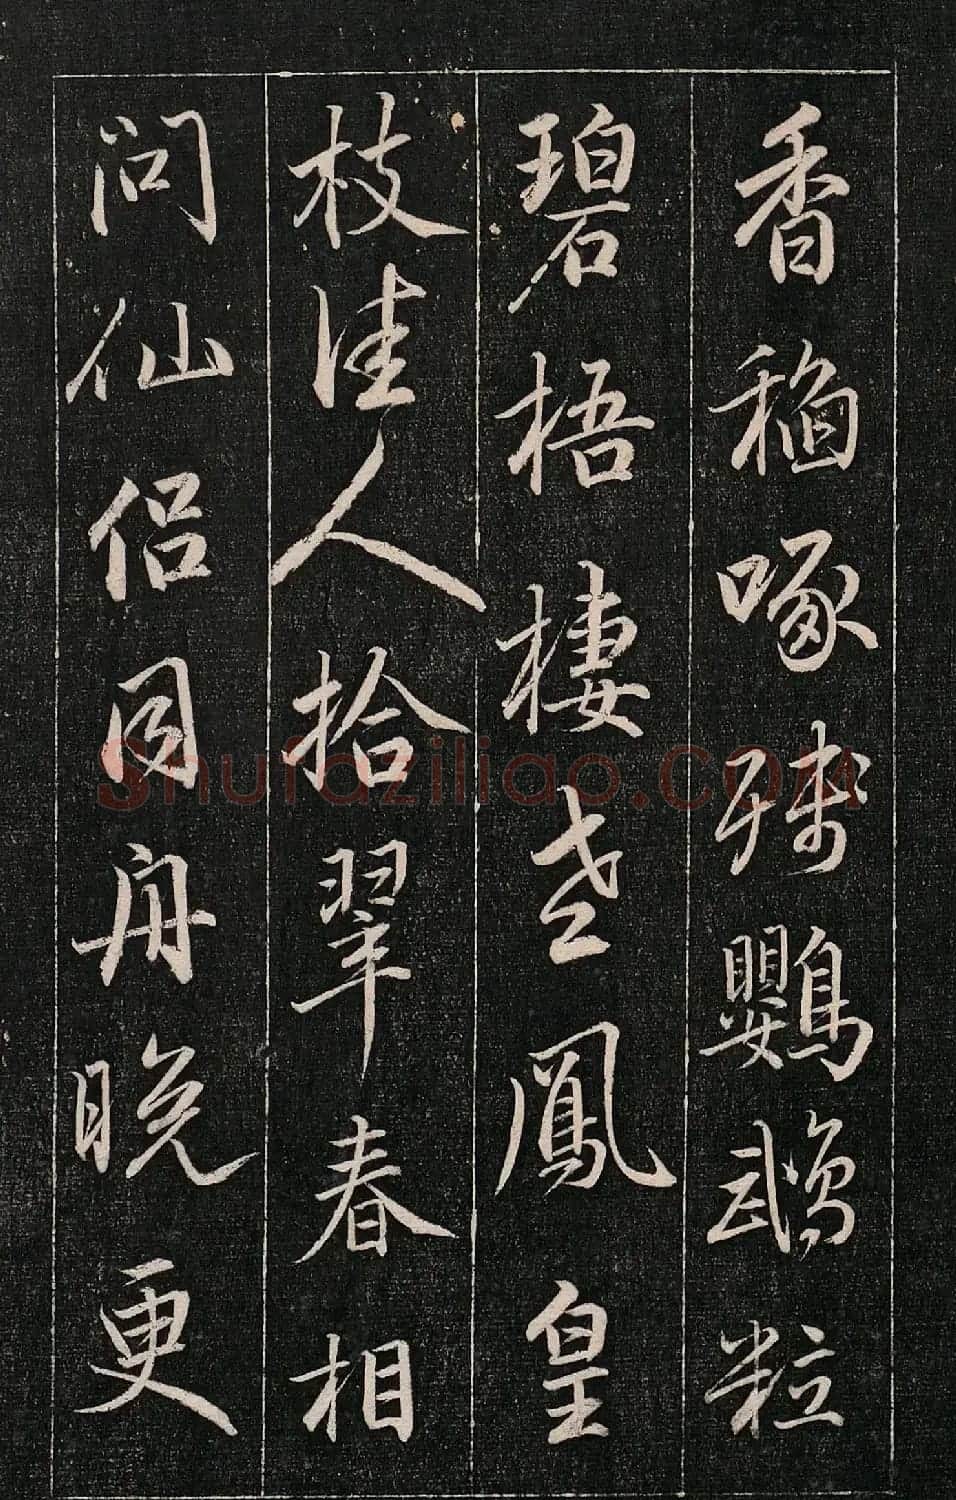 香稻啄殘鸚鵡粒
碧梧棲老鳳皇
枝佳人拾翠春相
問仙侶同舟晚更
Shufaziliao.COM